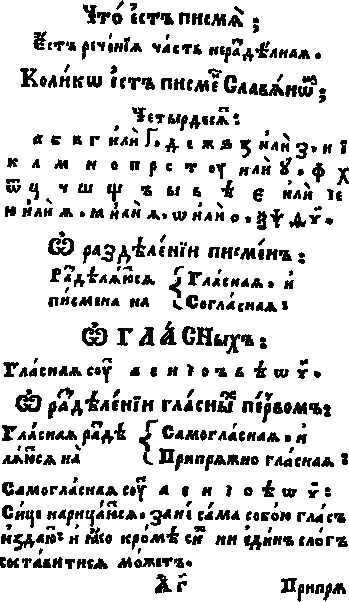 Что́ є҆стъ писмѧ̀;
Єстъ рече́нїѧ часть нераⷥдѣ́лнаѧ.
Коли́кѡ є҆стъ писмеⷩ Славѧ́нѡⷨ;
Четырдесѧⷮ:
а б в г и҆лѝ ґ. д е ж ѕ з и҆лѝ з. и ї
к л м н о п р с т оу и҆лѝ ꙋ. ф х
ѿ ц ч ш щ ъ ы ь ѣ є и҆лѝ ѥ
ю и҆лѝ ѫ. ѧ и҆лѝ ꙗ. ѡ и҆лѝ о. ѯ ѱ ѳ ѵ.
Ѡ раздѣле́нїи писме́нъ:
Раⷥдѣлѧ́ютсѧ { Гла́снаѧ. и҆
пи́смена на { Согла́снаѧ:
Ѡ ГЛА́СНыхъ:
Гла́снаѧ соуⷮ а е и і о ъ ь ѣ ѡ ѵ.
Ѡ раⷥдѣле́нїи гла́сныⷯ пе́рвомъ:
Гла́снаѧ раⷥдѣ { Самогла́снаѧ. и҆
лѧ́ютсѧ на̀ { Припрѧ́жно гла́снаѧ:
Самогла́снаѧ соуⷮ а е и і о ѣ ѡ ѵ:
Си́це нарица́ютсѧ. занѐ са́ма собо́ю гла́съ
и҆здаю́ⷮ: и҆ ꙗ҆́кѡ кро́мѣ сиⷯ ни є҆ди́нъ сло́гъ
соста́витисѧ мо́жетъ.
А г҃ Припрѧ